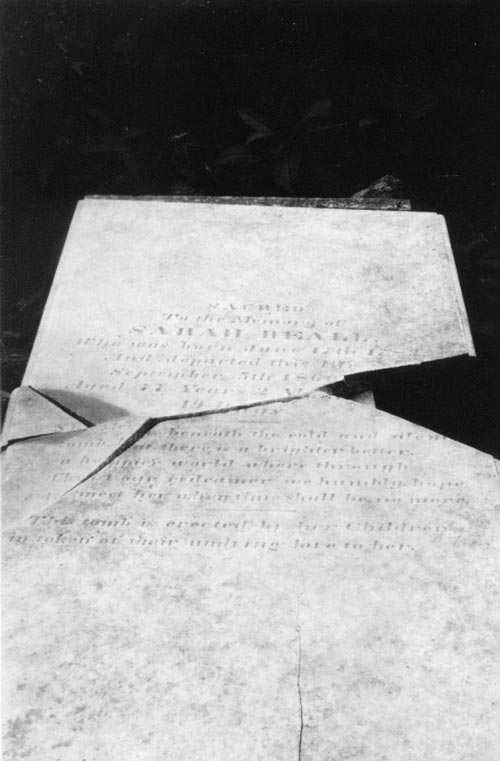 SACRED
To the Memory of
SARAH BEALL
Who was born June 17th
And departed this life
September 5th 18
Aged 77 Years 2
19
beneath the cold and silent
tomb, but there is a brighter better,
a happier world where through
Christ our Redeemer we humbly hope
to meet her when time shall be no more
This tomb is erected by her Children
in token of their love to her.